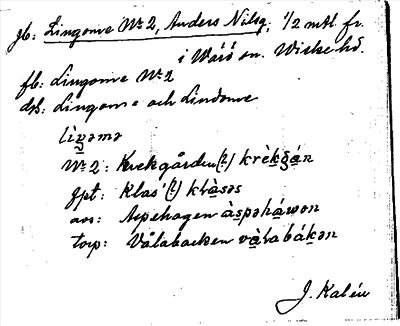 jb: Lingome Nr 2, Anders Nilsg, 1/2 mtl. fr.
i Warö sn. Wiske hd.
fb: Lingome Nr 2
dsb: Lingom= och Lindome
lìŋəmə
Nr 2: Kvekgården(?) krèkgán
gpt: Klas'(?) klàsəs
ani: Aspehagen àspəháwən
torp: Vålabacken vàlabákən
J. Kalén